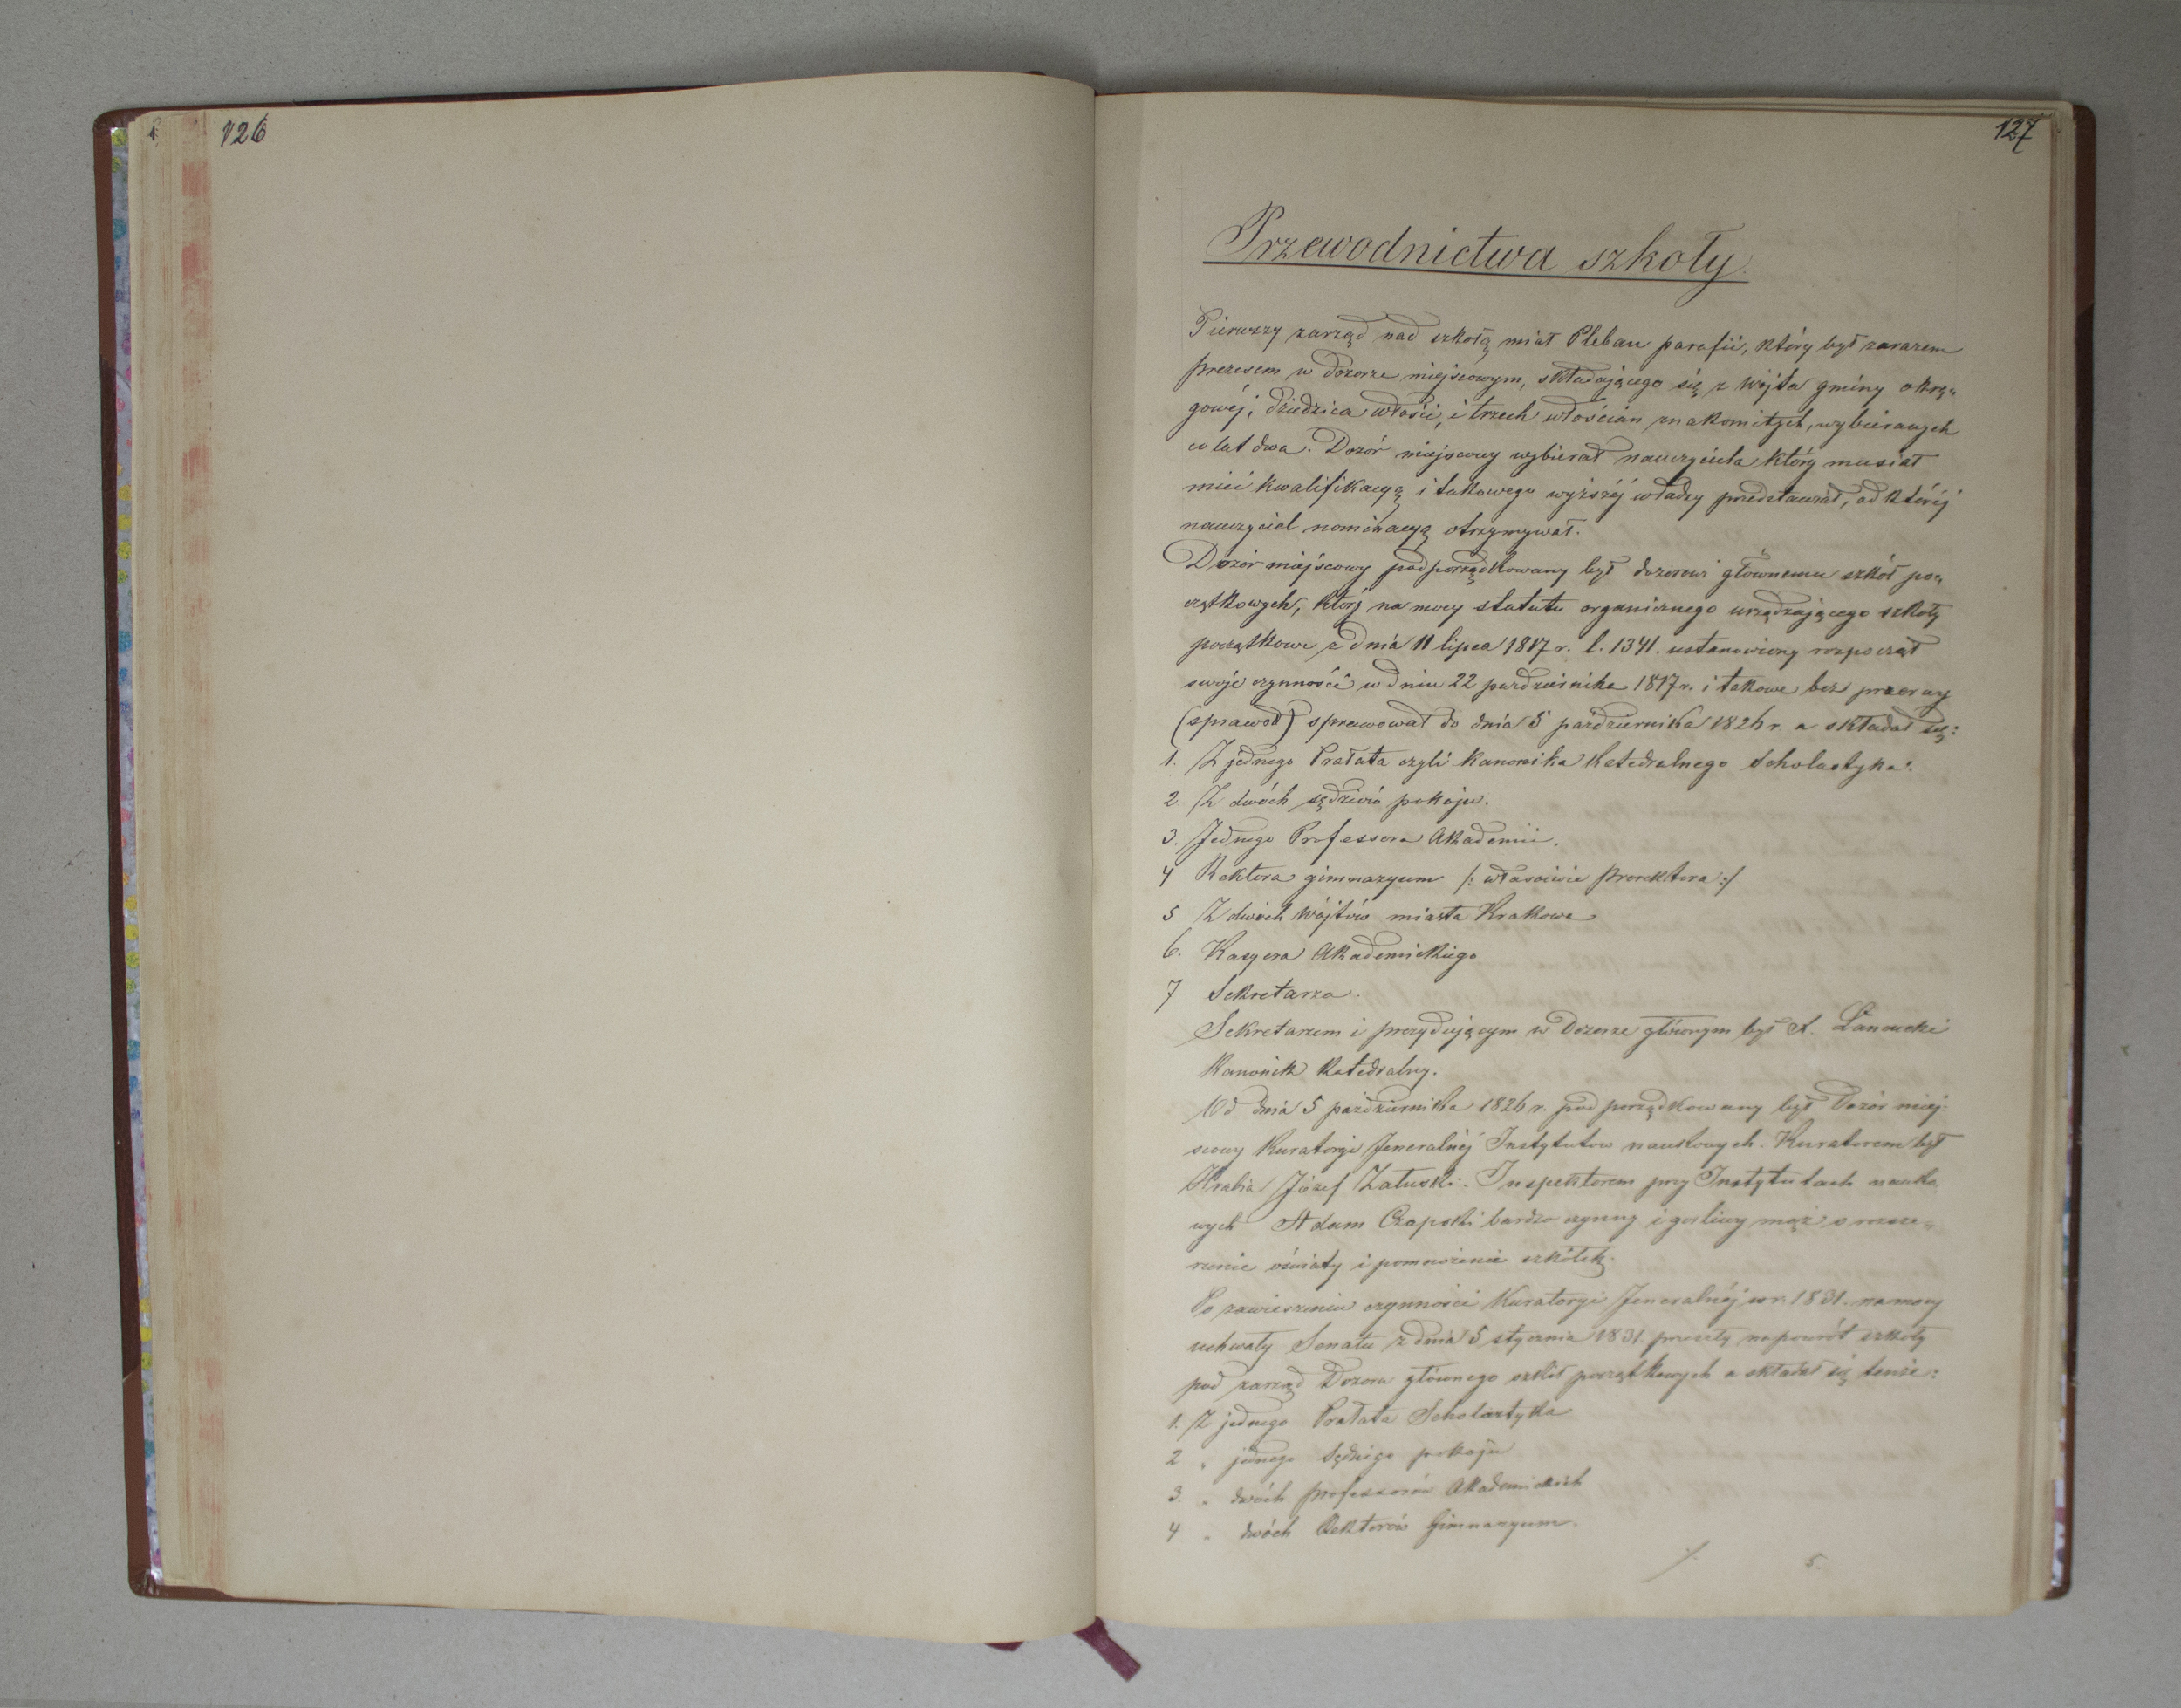 126
127
Przewodnictwa szkoły.
Pierwszy zarząd nad szkołą miał Pleban parafii, który był zarazem
prezesem w dozorze miejscowym, składającego się z Wójta gminy okrę„
gowéj, dziedzica włości, i trzech włościan znakomitych, wybieranych
co lat dwa. Dozór miejscowy wybierał nauczyciela który musiał
mieć kwalifikacyą i takowego wyższéj władzy przedstawiał, od któréj
nauczyciel nominacyą otrzymywał.
Dozór miejscowy podporządkowany był dozorowi głównemu szkół po„
czątkowych, który na mocy statutu organicznego urządzającego szkoły
początkowe z dnia 11 lipca 1817 r. l. 1341. ustanowiony rozpoczął
swoje czynności w dniu 22 października 1817 r. i takowe bez przerwy
(sprawoł) sprawował do dnia 5 października 1826 r. a składał się:
1. Z jednego Prałata czyli Kanonika Katedralnego Scholastyka.
2. Z dwóch sędziów pokoju.
3. Jednego Professora Akademii.
4 Rektora gimnazyum /: własciwie Prorektora :/
5 Z dwóch Wójtów miasta Krakowa
6. Kasyera Akademickiego
7 Sekretarza.
Sekretarzem i prezydującym w Dozorze głównym był X. Łancucki
Kanonik Katedralny.
Od dnia 5 października 1826 r. podporządkowany był Dozór miej-
scowy Kuratoryi Jeneralnéj Instytutow naukowych. Kuratorem był
Hrabia Józef Załuski. Inspektorem przy Instytutach nauko
wych Adam Czapski bardzo czynny i gorliwy mąż o rozsze„
rzenie oświaty i pomnożenie szkółek.
Po zawieszeniu czynności Kuratoryi Jeneralnéj w r. 1831. na mocy
uchwały Senatu z dnia 5 stycznia 1831 przeszły napowrót szkoły
pod zarząd Dozoru głównego szkół początkowych a składał się tenże:
1. Z jednego Prałata Scholastyka
2 „ jednego Sędziego pokoju
3. „ dwóch professorów Akademickich
4 „ dwóch Rektorów Gimnazyum.
./. 5.